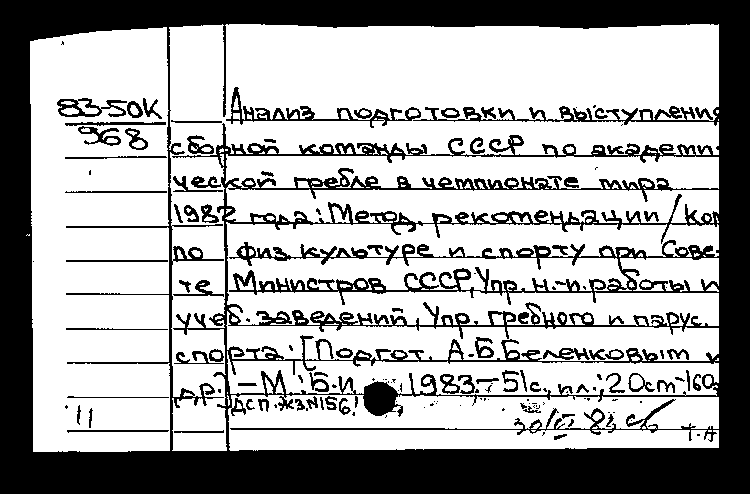 83-50К
968
Анализ подготовки и выступления
сборной команды СССР по академи-
ческой гребле в чемпионате мира
1982 года: Метод. рекомендации / Ком
по физ. культуре и спорту при Сове-
те Министров СССР, Упр. н.-и. работы и
учеб. заведений, Упр. гребного и парус.
спорта; [Подгот. А.Б. Беленковым и
др.] – М.: Б.и., 1983. – 51 с., пл.; 20 см – 160
ДСП. Экз. N 156!
11
30/ 83
Т. А